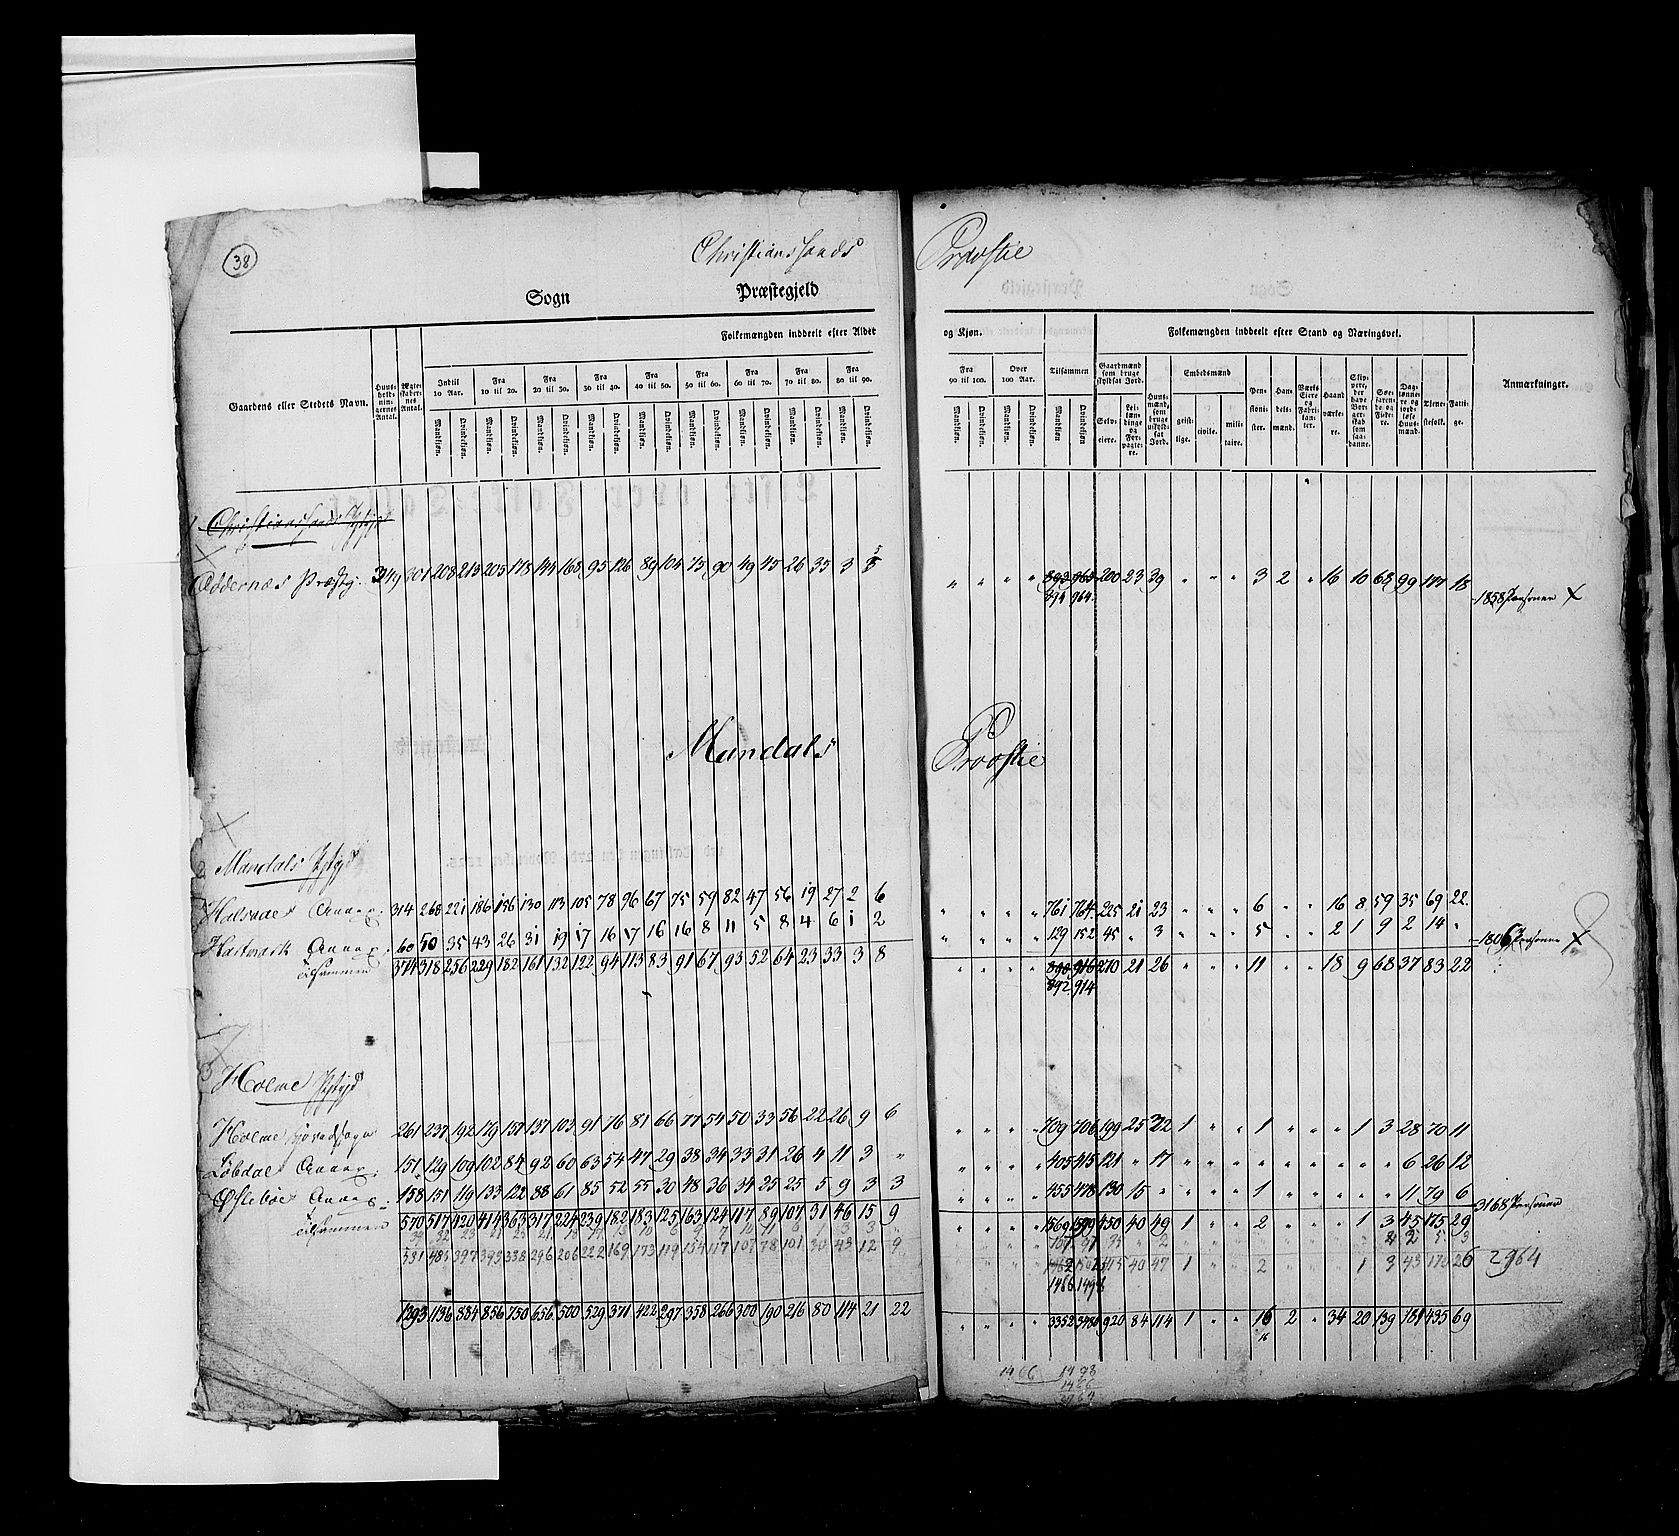 38
Christianssands Provstie
Sogn Præstegjeld
Folkemængden inddeelt efter Alder og Kjøn.
Folkemængden inddeelt efter Stand og Næringsvei.
Gaardens eller Stedets Navn.
Huusholdningernes Antal.
Ægteskabernes Antal.
Indtil 10 Aar.
Fra 10 til 20.
Fra 20 til 30.
Fra 30 til 40.
Fra 40 til 50.
Fra 50 til 60.
Fra 60 til 70.
Fra 70 til 80.
Fra 80 til 90.
Fra 90 til 100.
Over 100 Aar.
Tilsammen
Mandkjøn. Qvindekjøn.
Gaardmænd som bruge skyldsat Jord.
Selveiere.
Leilændinge og Forpagtere.
Huusmænd, som bruge uskyldsat Jord.
Embedsmænd
geistlige. civile. militaire.
Pensionister.
Handelsmænd.
Værks Eiere og Fabrikanter.
Haandværkere.
Skippere, der have Borgerskab som saadanne.
Søefarende og Fiskere.
Dagleiere og jordløse Huusmænd.
Tjenestefolk.
Fattige.
Anmærkninger.
Christianssands Pstgd
Oddernæs Præstg. 349 301 208 213 205 178 144 168 95 126 89 104 75 90 49 45 26 35 3 5
200 23 39 " " " 3 2 " 16 10 68 99 177 18
894 964.
1858 Personer X
Mandals Provstie
2 Mandals Pstgd
Halsaaes Annex: 314 268 221 186 156 130 113 105 78 96 67 75 59 82 47 56 19 27 2 6
" " " " 761 764 225 21 23 " " " 6 " " 16 8 59 35 69 22
Hartmark Annex: 60 50 35 43 26 31 19 17 16 17 16 16 8 11 5 8 4 6 1 2
" " " " 129 152 45 " 3 " " " 5 " " 2 1 9 2 14 "
1806 Personer X
tilsammen 374 318 256 229 182 161 132 122 94 113 83 91 67 93 52 64 23 33 3 8
" " " " 890 916 270 21 26 " " " 11 " " 18 9 68 37 83 22
892 914
3 Holme Pstgd
Holme Hovedsogn 261 237 192 179 157 137 103 91 76 81 66 77 54 50 33 56 22 26 9 6
" " " " 709 706 199 25 32 1 " " 1 " " " 1 3 28 70 11
Løbdal Annex: 151 129 109 102 84 92 60 63 54 47 29 38 34 33 31 26 4 11 3 "
" " " " 405 415 121 " 17 " " " " " " " " " 6 26 12
Øslebøe Annex: 158 151 119 133 122 88 61 85 52 55 30 48 36 34 25 25 5 9 3 3
" " " " 455 478 130 15 " " " " 1 " " " " " 11 79 6
3168 Personer
tilsammen 570 517 420 414 363 317 224 239 182 183 125 163 124 117 89 107 31 46 15 9
" " " " 1569 1599 450 40 49 1 " " 2 " " " 1 3 45 175 29
531 485 397 393 338 296 206 222 169 173 119 154 117 107 78 101 30 43 12 9
415 40 47 1 " " 2 " " " 1 3 43 170 26 2964
1466 1498
1293 1136 884 856 750 656 500 529 371 422 297 358 266 300 190 216 80 114 21 22
" " " " 3352 3480 920 84 114 1 " " 16 2 " 34 20 139 181 435 69
1466